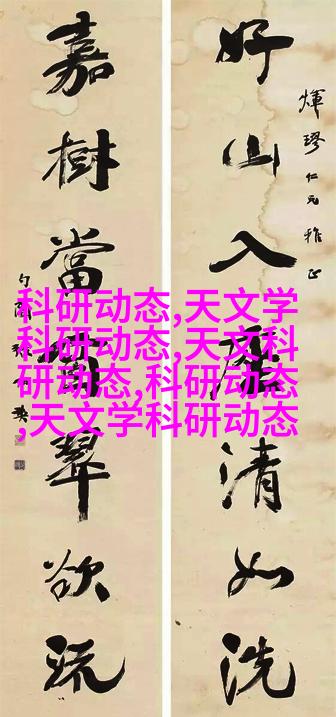 好山入座清如洗
煇璆仁兄雅正
嘉樹當窗翠欲流
科研动态,天文学
科研动态,天文科
研动态,科研动态
,天文学科研动态